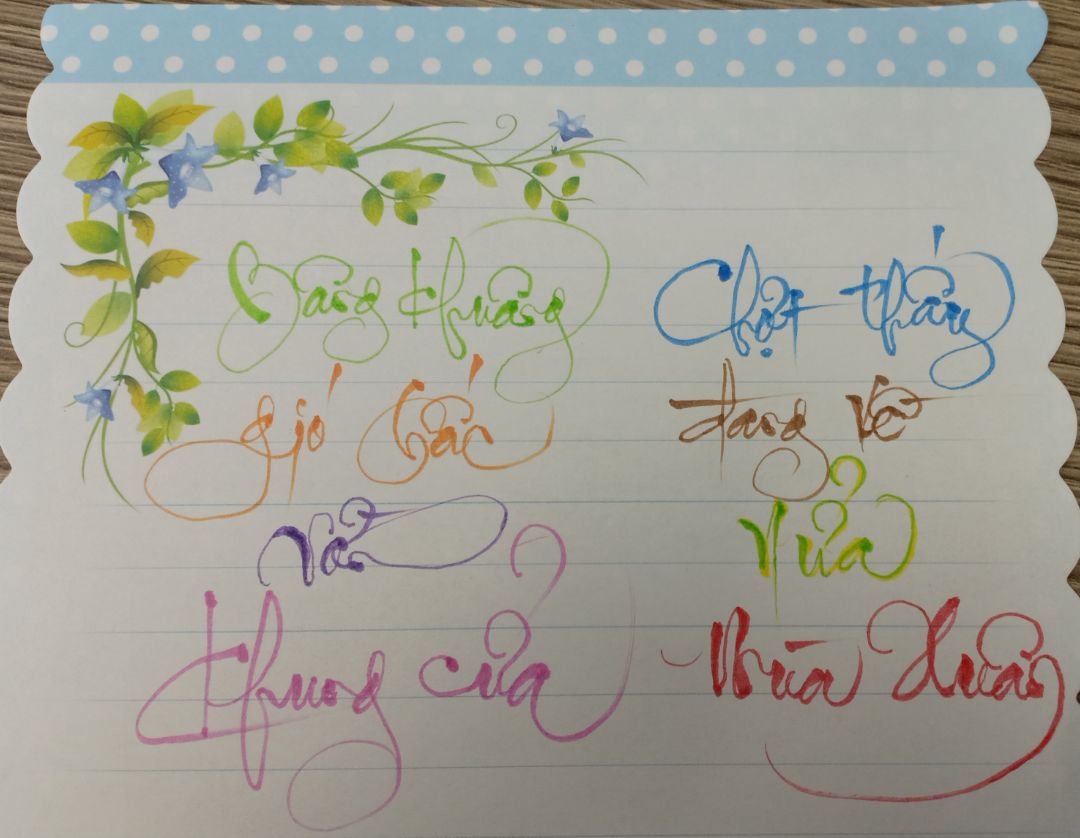 Bâng khuâng
gió bấc
Vỗ
khung cửa
Chợt thấy
đang về
Nửa
Mùa Xuân